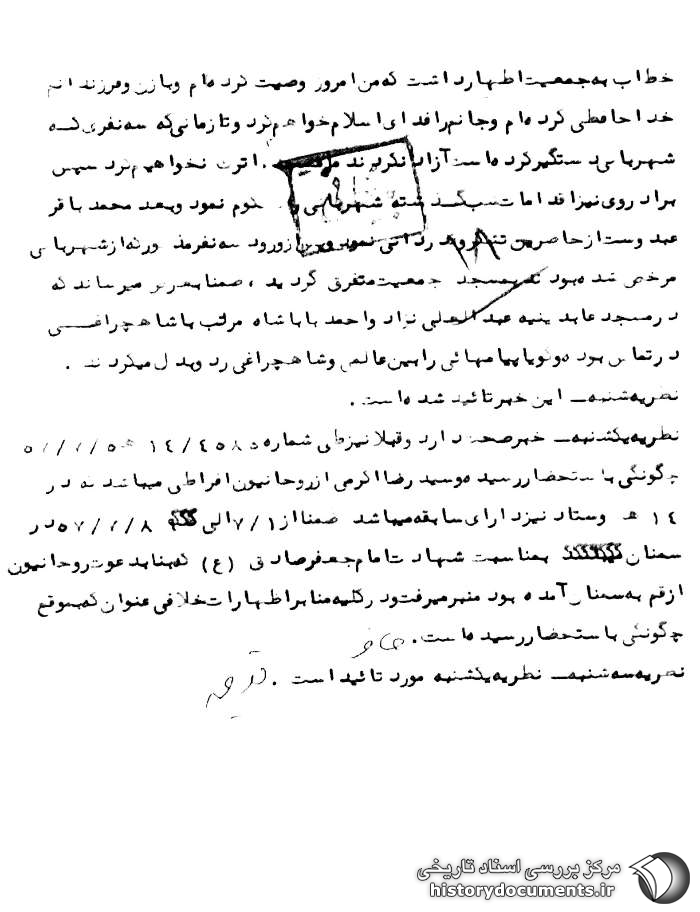 خطاب به جمعیت اظهار داشت که من امروز وصیت کرده ام و با زن و فرزندانم
خداحافظی کرده ام و جانم را فدای اسلام خواهم کرد و تا زمانی که سه نفری که
شهربانی دستگیر کرده است آزاد نکردند را ترک نخواهیم کرد سپس
مرادروی نیز اقدامات سبگذشته شهربانی را محکوم نمود و بعد محمد باقر
عبدوست از حاضرین تشکر و قدردانی نمود و پس از ورود سه نفر مذکور که از شهربانی
مرخص شده بود به مسجد جمعیت متفرق گردید ، ضمنا بعرض میرساند که
در مسجد عابدینیه عبدالعلی نژاد و احمد باباشاه مرتب با شاهچراغی
در تماس بوده و گویا پیامهائی را بین عالمی و شاهچراغی رد و بدل میکردند .
نظریه شنبه ـ این خبر تائید شده است .
نظریه یکشنبه ـ خبر صحت دارد و قبلا نیز طی شماره ۴۵۸۵/۱۴ ه
چگونگی باستحضار رسیده و سید رضا اکرمی از روحانیون افراطی میباشد که در
۱۴ ه و ستاد نیز دارای سابقه میباشد ضمنا از ۷/۱ الی ۵۷/۷/۸ در
سمنان بمناسبت شهادت امام جعفر صادق (ع) که بنا بدعوت روحانیون
از قم به سمنان آمده بود منبر میرفت و در کلیه منابر اظهارات خلافی عنوان که بموقع
چگونگی باستحضار رسیده است .
نظریه سه شنبه ـ نظریه یکشنبه مورد تائید است .
مرکز بررسی اسناد تاریخی
historydocuments.ir